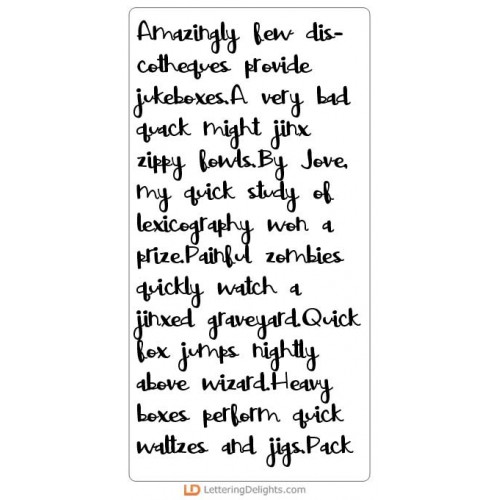 Amazingly few dis-
cotheques provide
jukeboxes.A very bad
quack might jinx
zippy fowls.By Jove,
my quick study of
lexicography won a
prize.Painful zombies
quickly watch a
jinxed graveyard.Quick
fox jumps nightly
above wizard.Heavy
boxes perform quick
waltzes and jigs.Pack
LD LetteringDelights.com